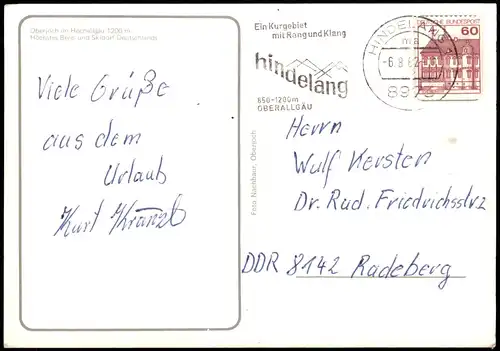 Oberjoch im Hochallgäu 1200 m
Höchstes Berg- und Skidorf Deutschlands
Viele Grüße
aus dem
Urlaub
Kurt Kränzl
Foto Nachbaur, Oberjoch
Ein Kurgebiet
mit Rang und Klang
hindelang
850-1200m
OBERALLGÄU
HINDELANG 1
ma
-6.8.82
8973
DEUTSCHE BUNDESPOST
60
Herrn
Wulf Kersten
Dr. Rud. Friedrichsstr
DDR 8142 Radeberg